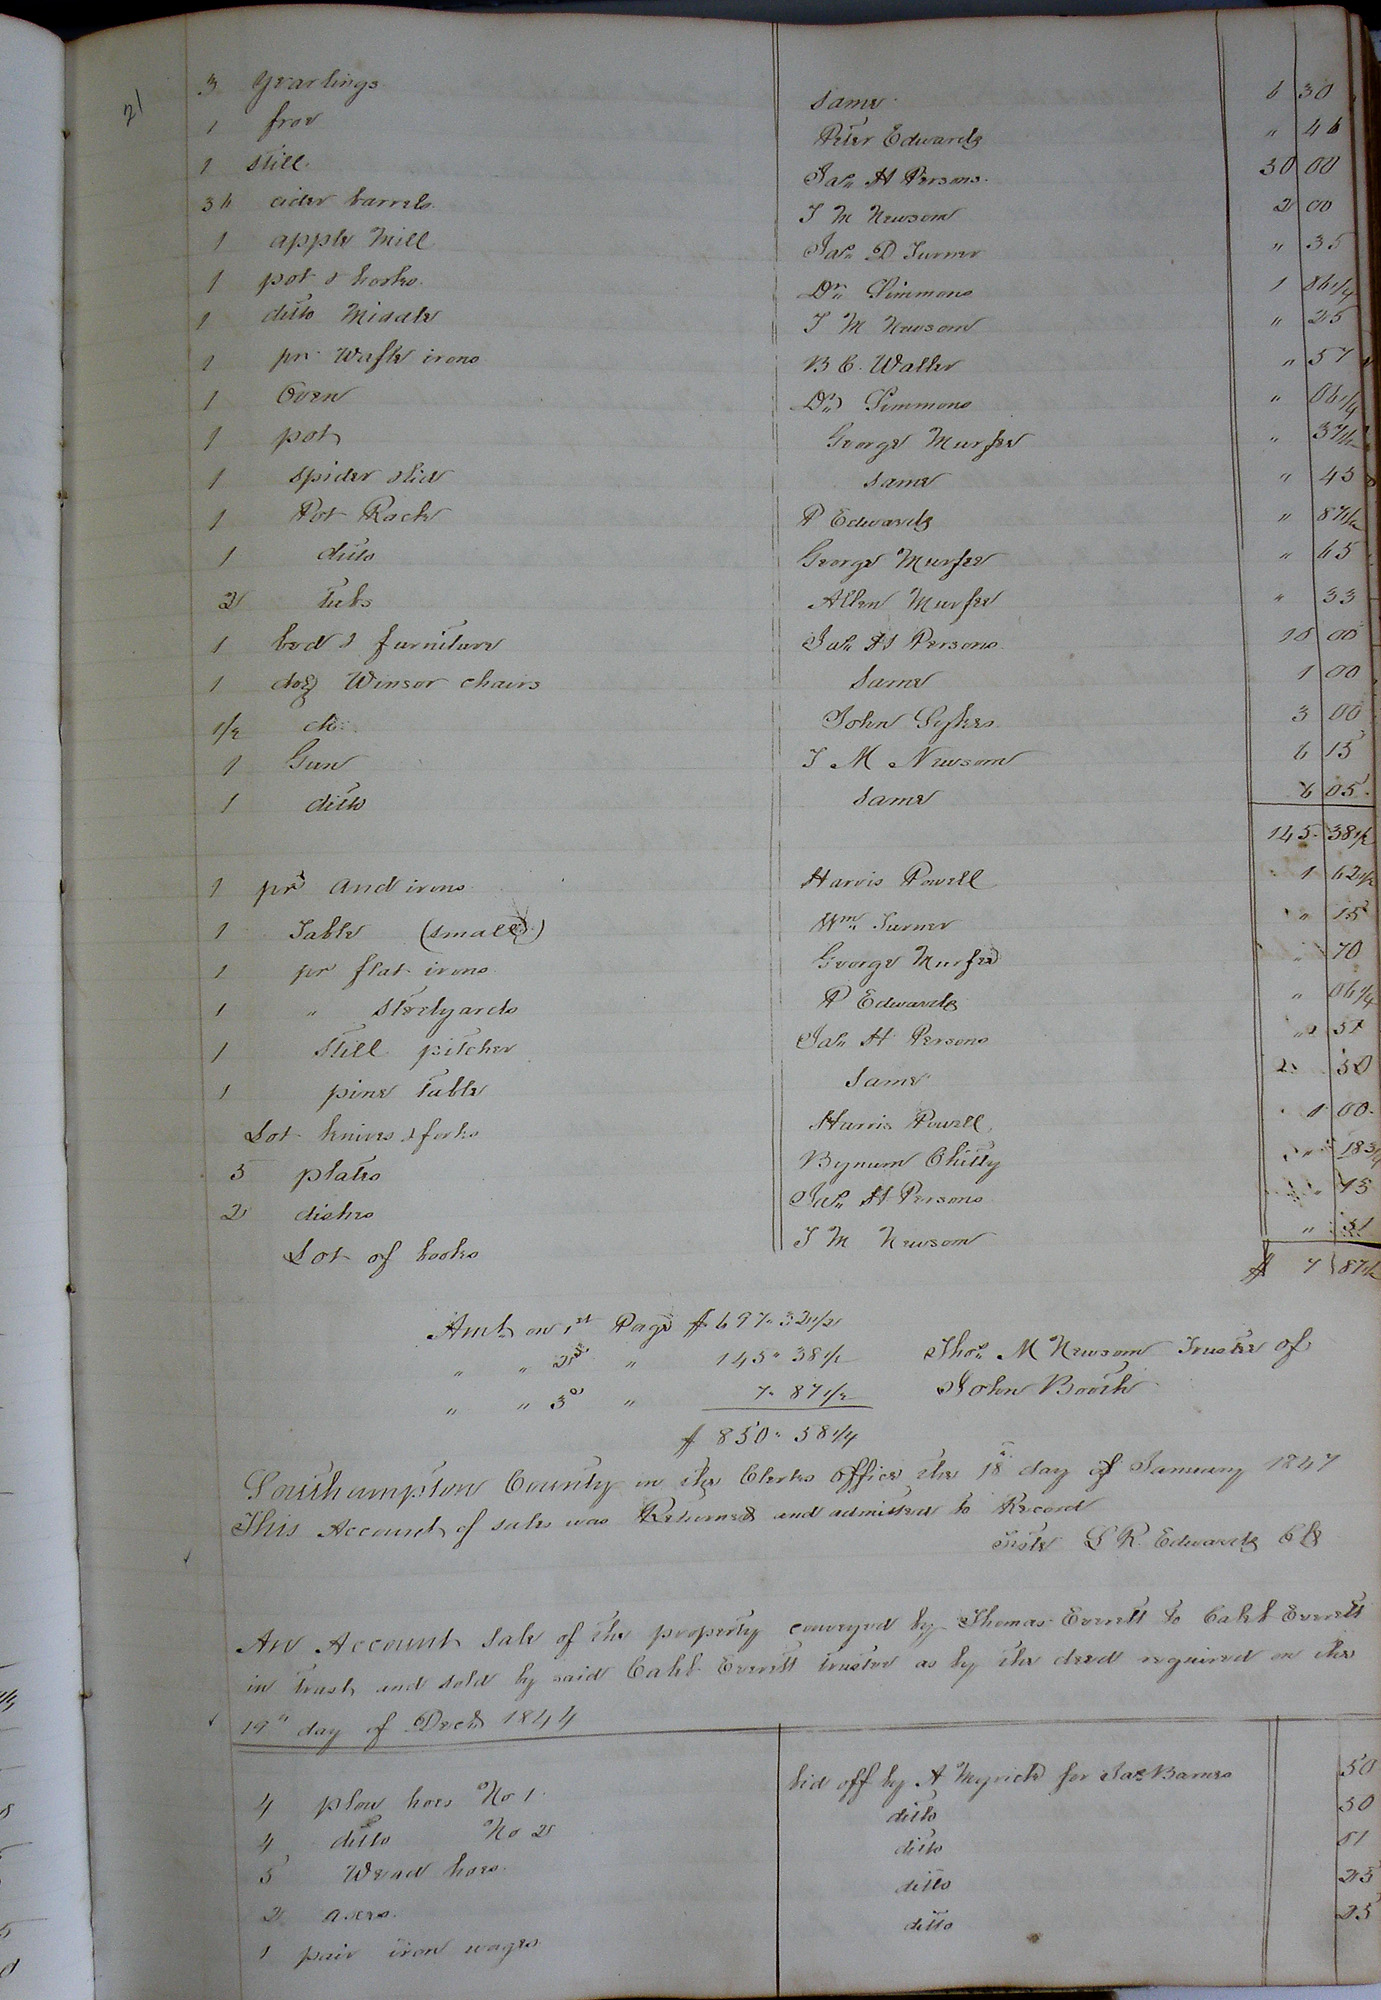 21
3 Yearlings same 6 30
1 froe Peter Edwards " 46
1 still Jas H Persons 30 00
36 cider barrels T M Newsom 2 00
1 apple Mill Jas D Turner " 35
1 pot & hooks Dr Simmons 1 06 1/4
1 ditto Middle T M Newsom " 25
1 pr Wafle irons B C. Waller " 57
1 Oven Dr Simmons " 06 1/4
1 pot George Murfee " 37 1/2
1 spider & lid same " 45
1 Pot Rack P Edwards " 87 1/2
1 ditto George Murfee " 65
2 tubs Allen Murfee " 33
1 bed & furniture Jas H Persons 10 00
1 doz Winsor chairs Same 1 00
1/2 do John Sykes 3 00
1 Gun T M Newsom 6 15
1 ditto same 6 05
145. 38 1/2
1 pr And irons Harris Powell 1 62 1/2
1 Table (small) Wm Turner " 15
1 pr flat irons George Murfee " 70
1 " Steelyards P Edwards " 06 1/4
1 Still pitcher Jas H Persons " 51
1 pine table Same 2 50
Lot knives & forks Harris Powell 1 00
5 plates Bynum Chitty " 18 3/4
2 dishes Jas H Persons 75
Lot of books T M Newsom " 51
$ 7 87 1/2
Amt on 1st Page $ 697. 32 1/2
" " 2d " 145. 38 1/2 Thos M Newsom Trustee of
" " 3d " 7. 87 1/2 John Booth
$ 850. 58 1/4
Southampton County in the Clerks office the 18 day of January 1847
This Account of sales was Returned and admitted to Record
Teste L R. Edwards Clk
An Account Sale of the property conveyed by Thomas Everett to Caleb Everett
in trust and sold by said Caleb Everett trustee as by the deed required on the
19" day of Decr 1844
4 plow hoes No 1 bid off by A Myrick for Jas Barnes 50
4 ditto No 2 ditto 30
5 Weed hoes ditto 51
2 axes ditto 25
1 pair iron wages ditto 25